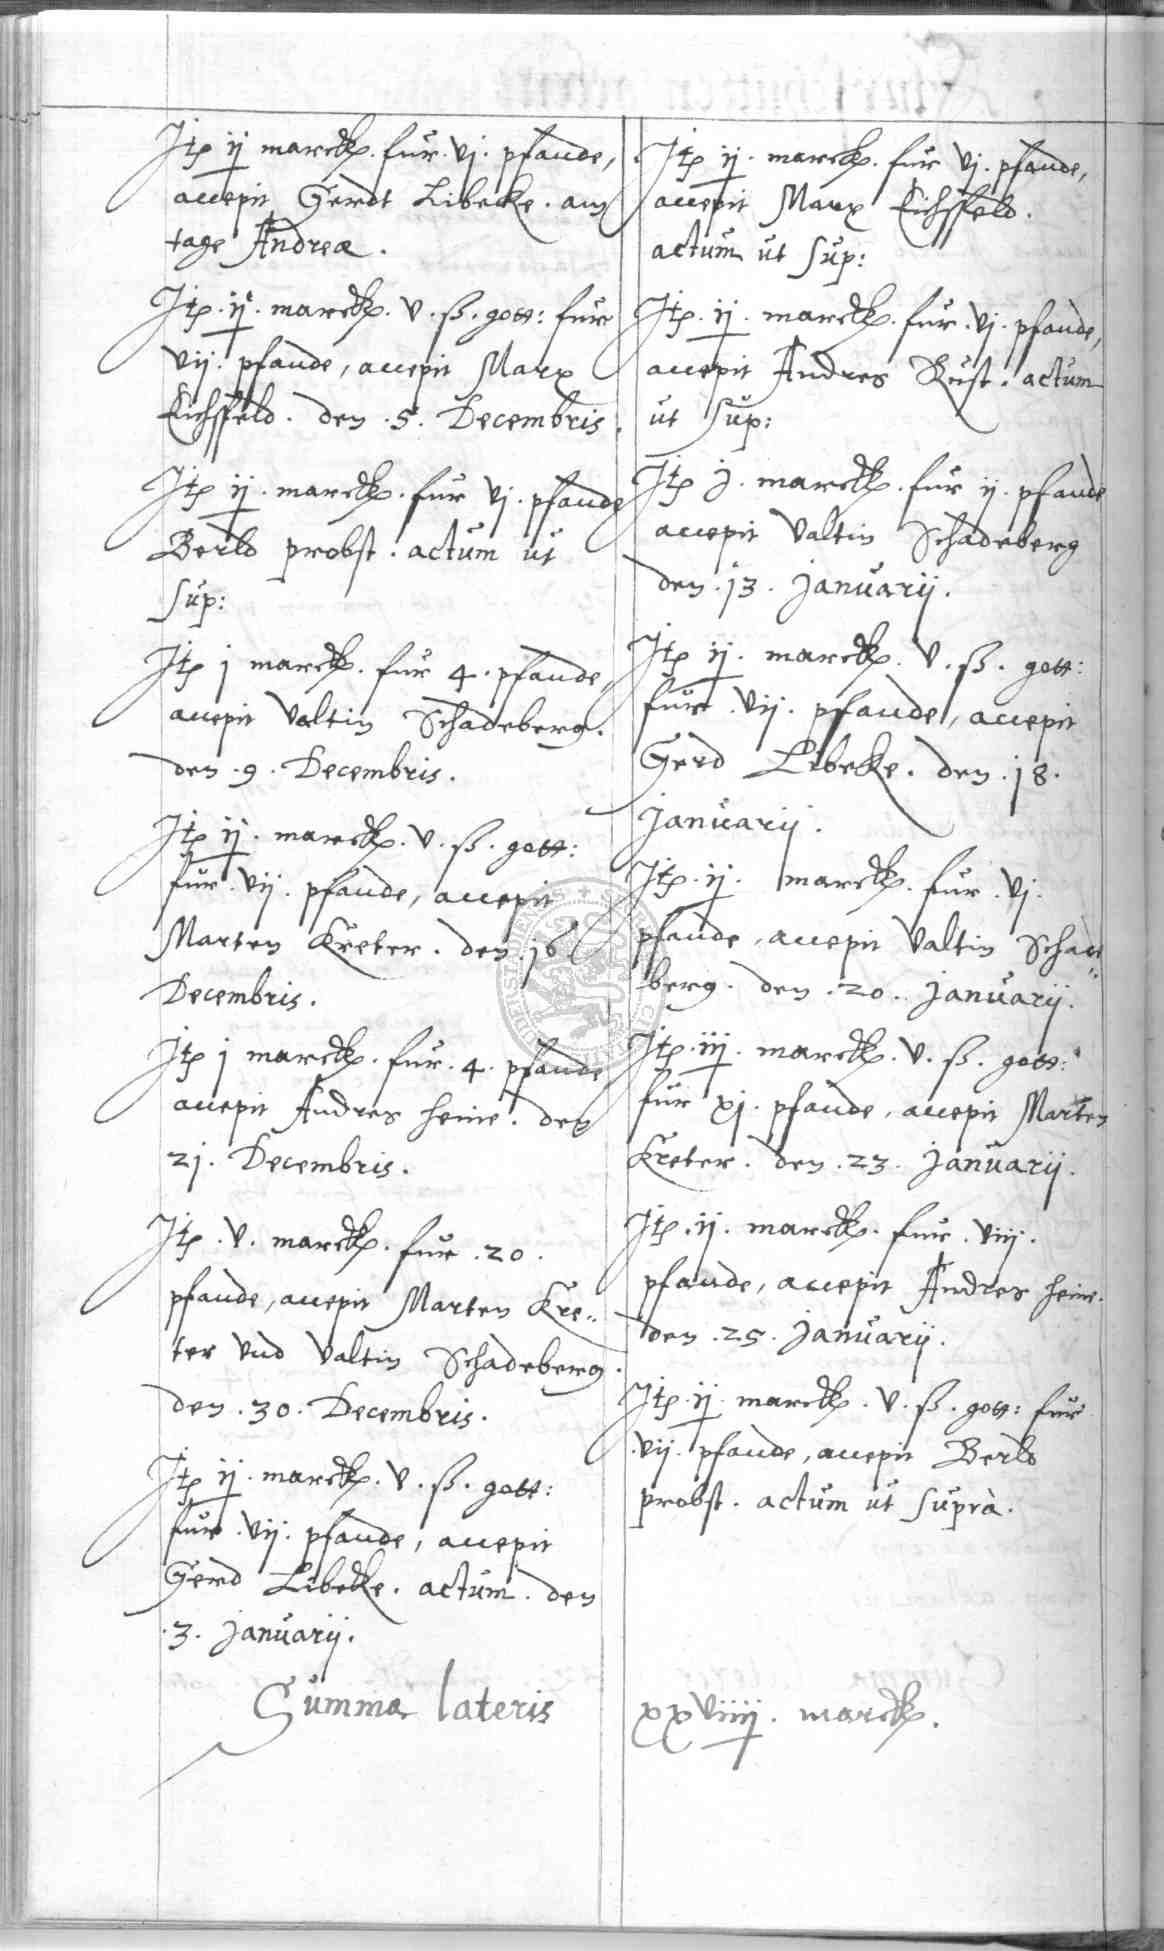 Itē ij marckē. fur. vj. pfande,
accepit Gerdt Libecke. am
tage Andreæ.
Itē. ij. marckē. v. ß. gott: fur
vij. pfande, accepit Marx
Eichsfeld. den. 5. Decembris.
Itē ij. marckē. fur vj. pfande
Berld probst. actum ut
sup:
Itē j marckē. fur 4. pfande,
accepit Valtin Schadeberg.
den. 9. Decembris.
Itē ij. marckē. v. ß. gott:
fur. vij. pfande, accepit
Marten Kreter. den. 16
Decembris.
Itē j marckē. fur. 4. pfande
accepit Andres Heine. den
21. Decembris.
Itē. v. marckē. fur. 20.
pfande, accepit Marten Kre„
ter vnd Valtin Schadeberg.
den. 30. Decembris.
Itē ij. marckē. v. ß. gott:
fur. vij. pfande, accepit
Gerd Libecke. actum. den
.3. Januarij.
Summa lateris
Itē ij. marckē. fur vj. pfande,
accepit Marx Eichsfeld.
actum ut sup:
Itē. ij. marckē. fur. vj. pfande,
accepit Andres Rust. actum
ut sup:
Itē j. marckē. fur ij. pfande
accepit Valtin Schadeberg
den. 13. Januarij.
Itē ij. marckē. v. ß. gott:
fur. vij. pfande, accepit
Gerd Libecke. den. 18.
Januarij.
Itē. ij. marckē. fur. vj.
pfande, accepit Valtin Schade„
berg. den. 20. Januarij.
Itē. iij. marckē. v. ß. gott:
fur xj. pfande, accepit Marten
Kreter. den. 23. Januarij.
Itē. ij. marckē. fur. viij.
pfande, accepit Andres Heine.
den. 25. Januarij.
Itē. ij. marckē. v. ß. gott: fur
.vij. pfande, accepit Berld
probst. actum ut suprà.
xxviiij. marckē.